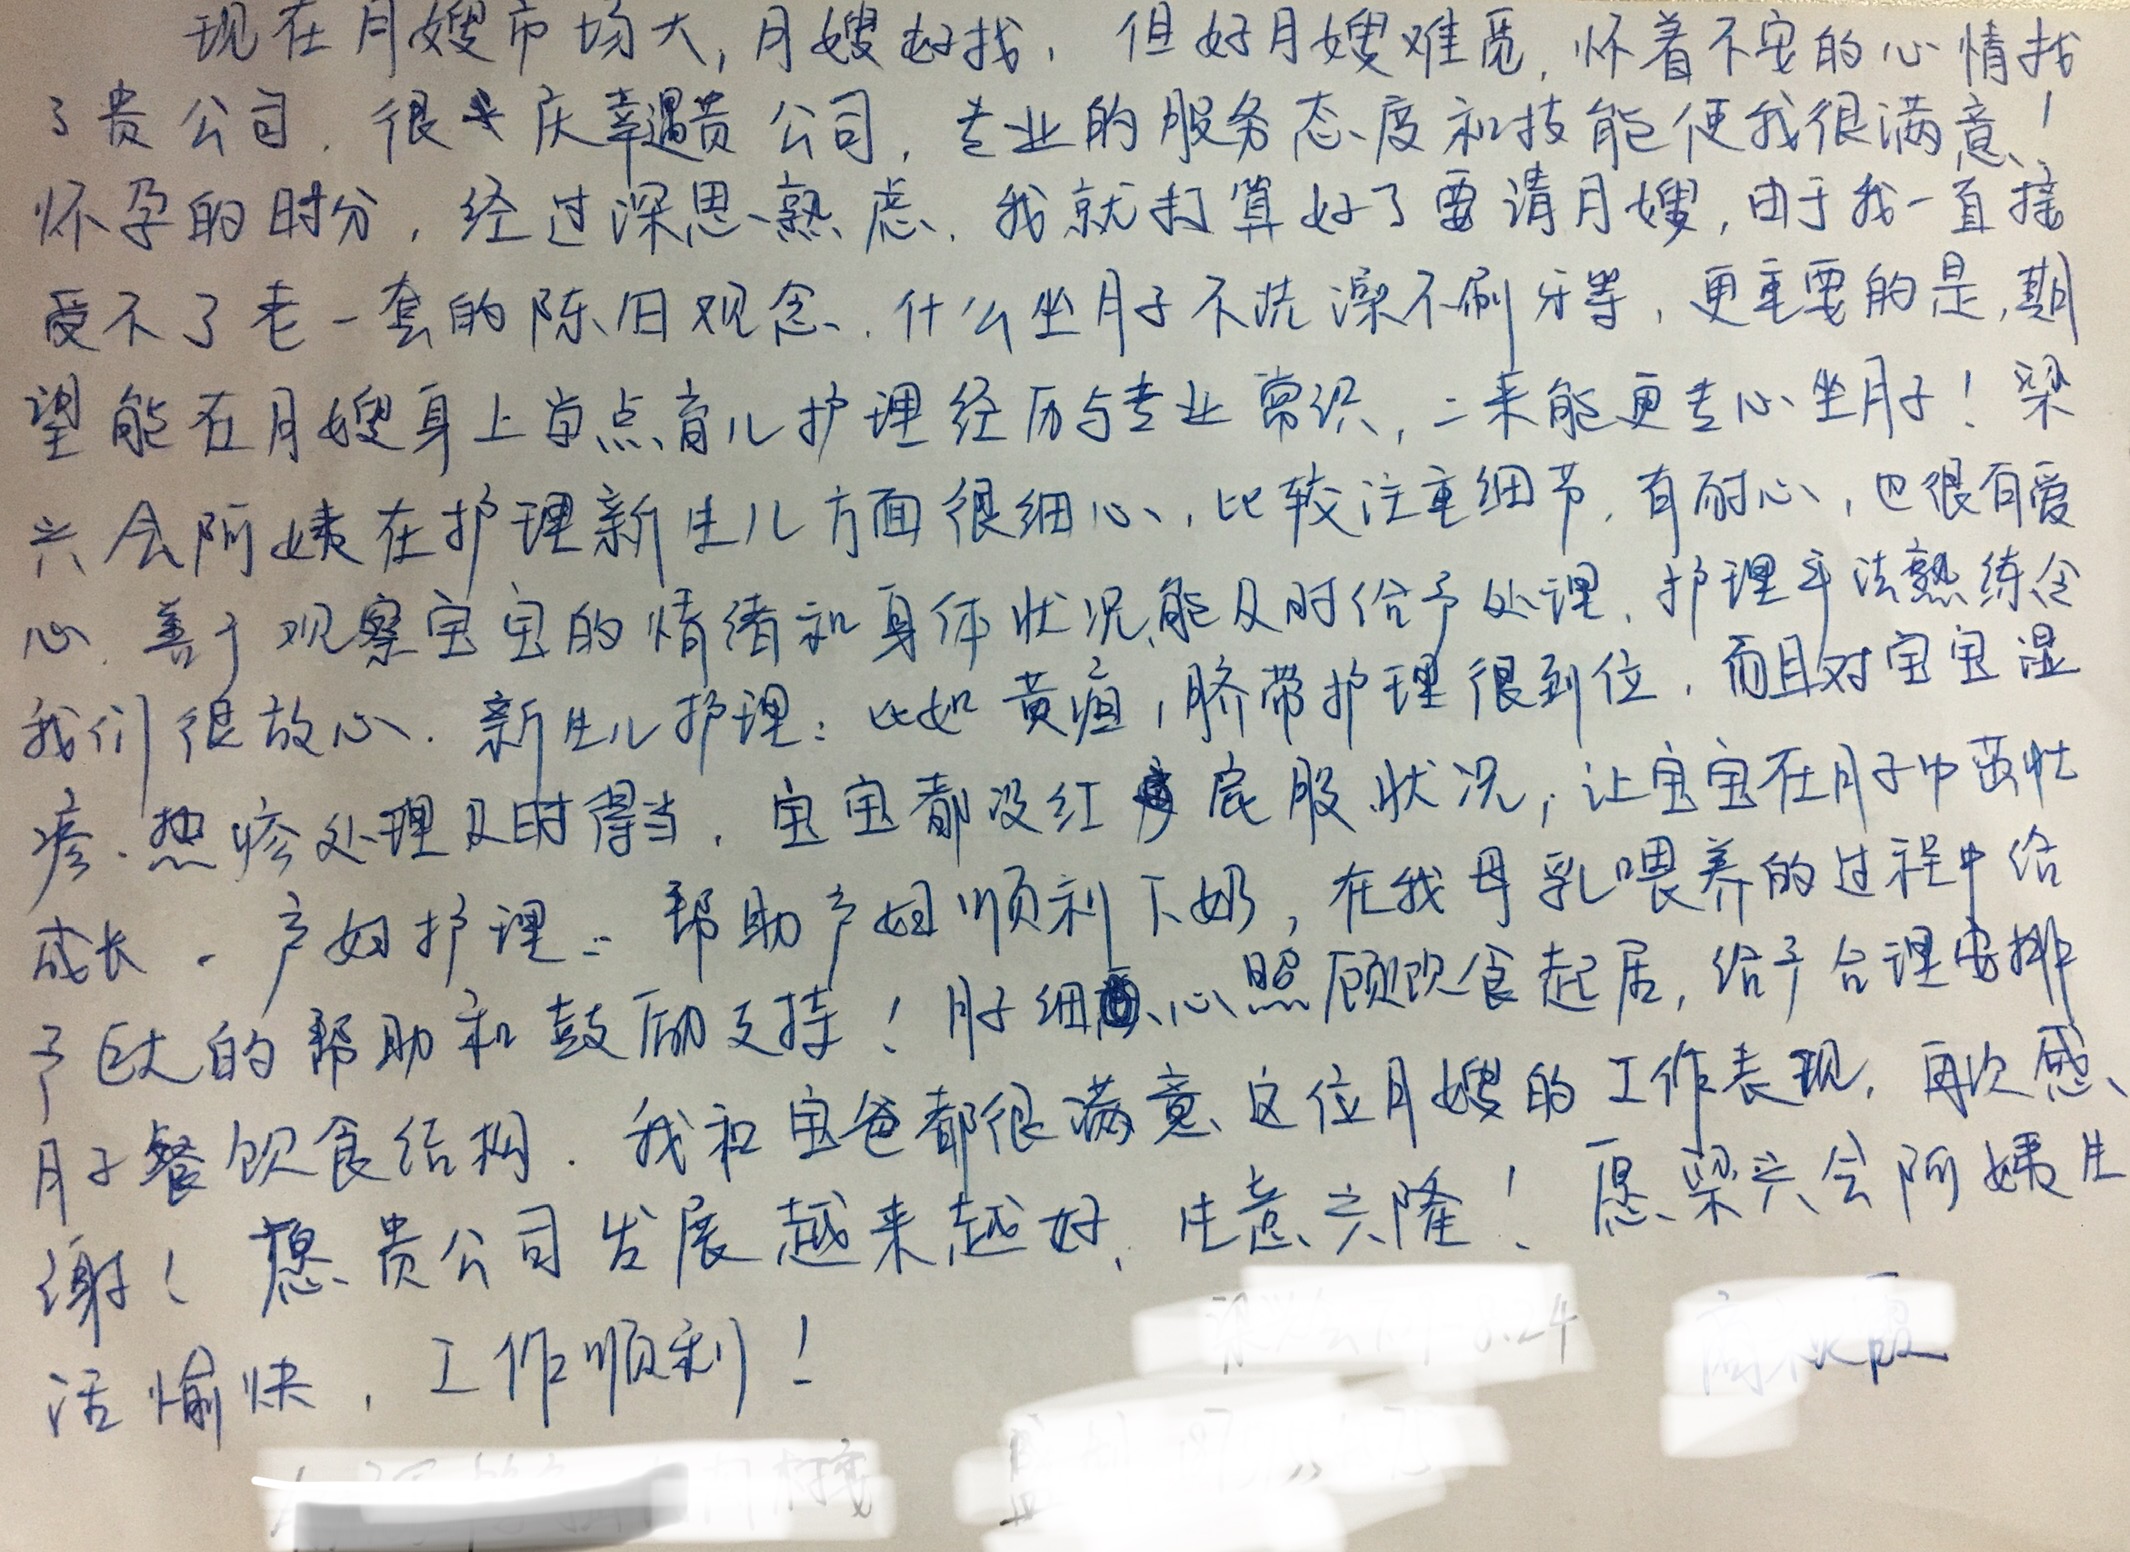 现在月嫂市场大，月嫂好找，但好月嫂难觅，怀着不安的心情找
了贵公司，很庆幸遇贵公司，专业的服务态度和技能使我很满意！
怀孕的时分，经过深思熟虑，我就打算好了要请月嫂，由于我一直接
受不了老一套的陈旧观念，什么坐月子不洗澡不刷牙等，更重要的是，期
望能在月嫂身上学点育儿护理经历与专业常识，二来能更专心坐月子！梁
兴会阿姨在护理新生儿方面很细心，比较注重细节，有耐心，也很有爱
心，善于观察宝宝的情绪和身体状况，能及时给予处理，护理手法熟练令
我们很放心．新生儿护理：比如黄疸，脐带护理很到位，而且对宝宝湿
疹．热疹处理及时得当，宝宝都没红屁股状况，让宝宝在月子中茁壮
成长．产妇护理：帮助产妇顺利下奶，在我母乳喂养的过程中给
予巨大的帮助和鼓励支持！月子细心照顾饮食起居，给予合理安排
月子餐饮食结构．我和宝爸都很满意这位月嫂的工作表现，再次感
谢！愿贵公司发展越来越好，生意兴隆！愿梁兴会阿姨生
活愉快，工作顺利！